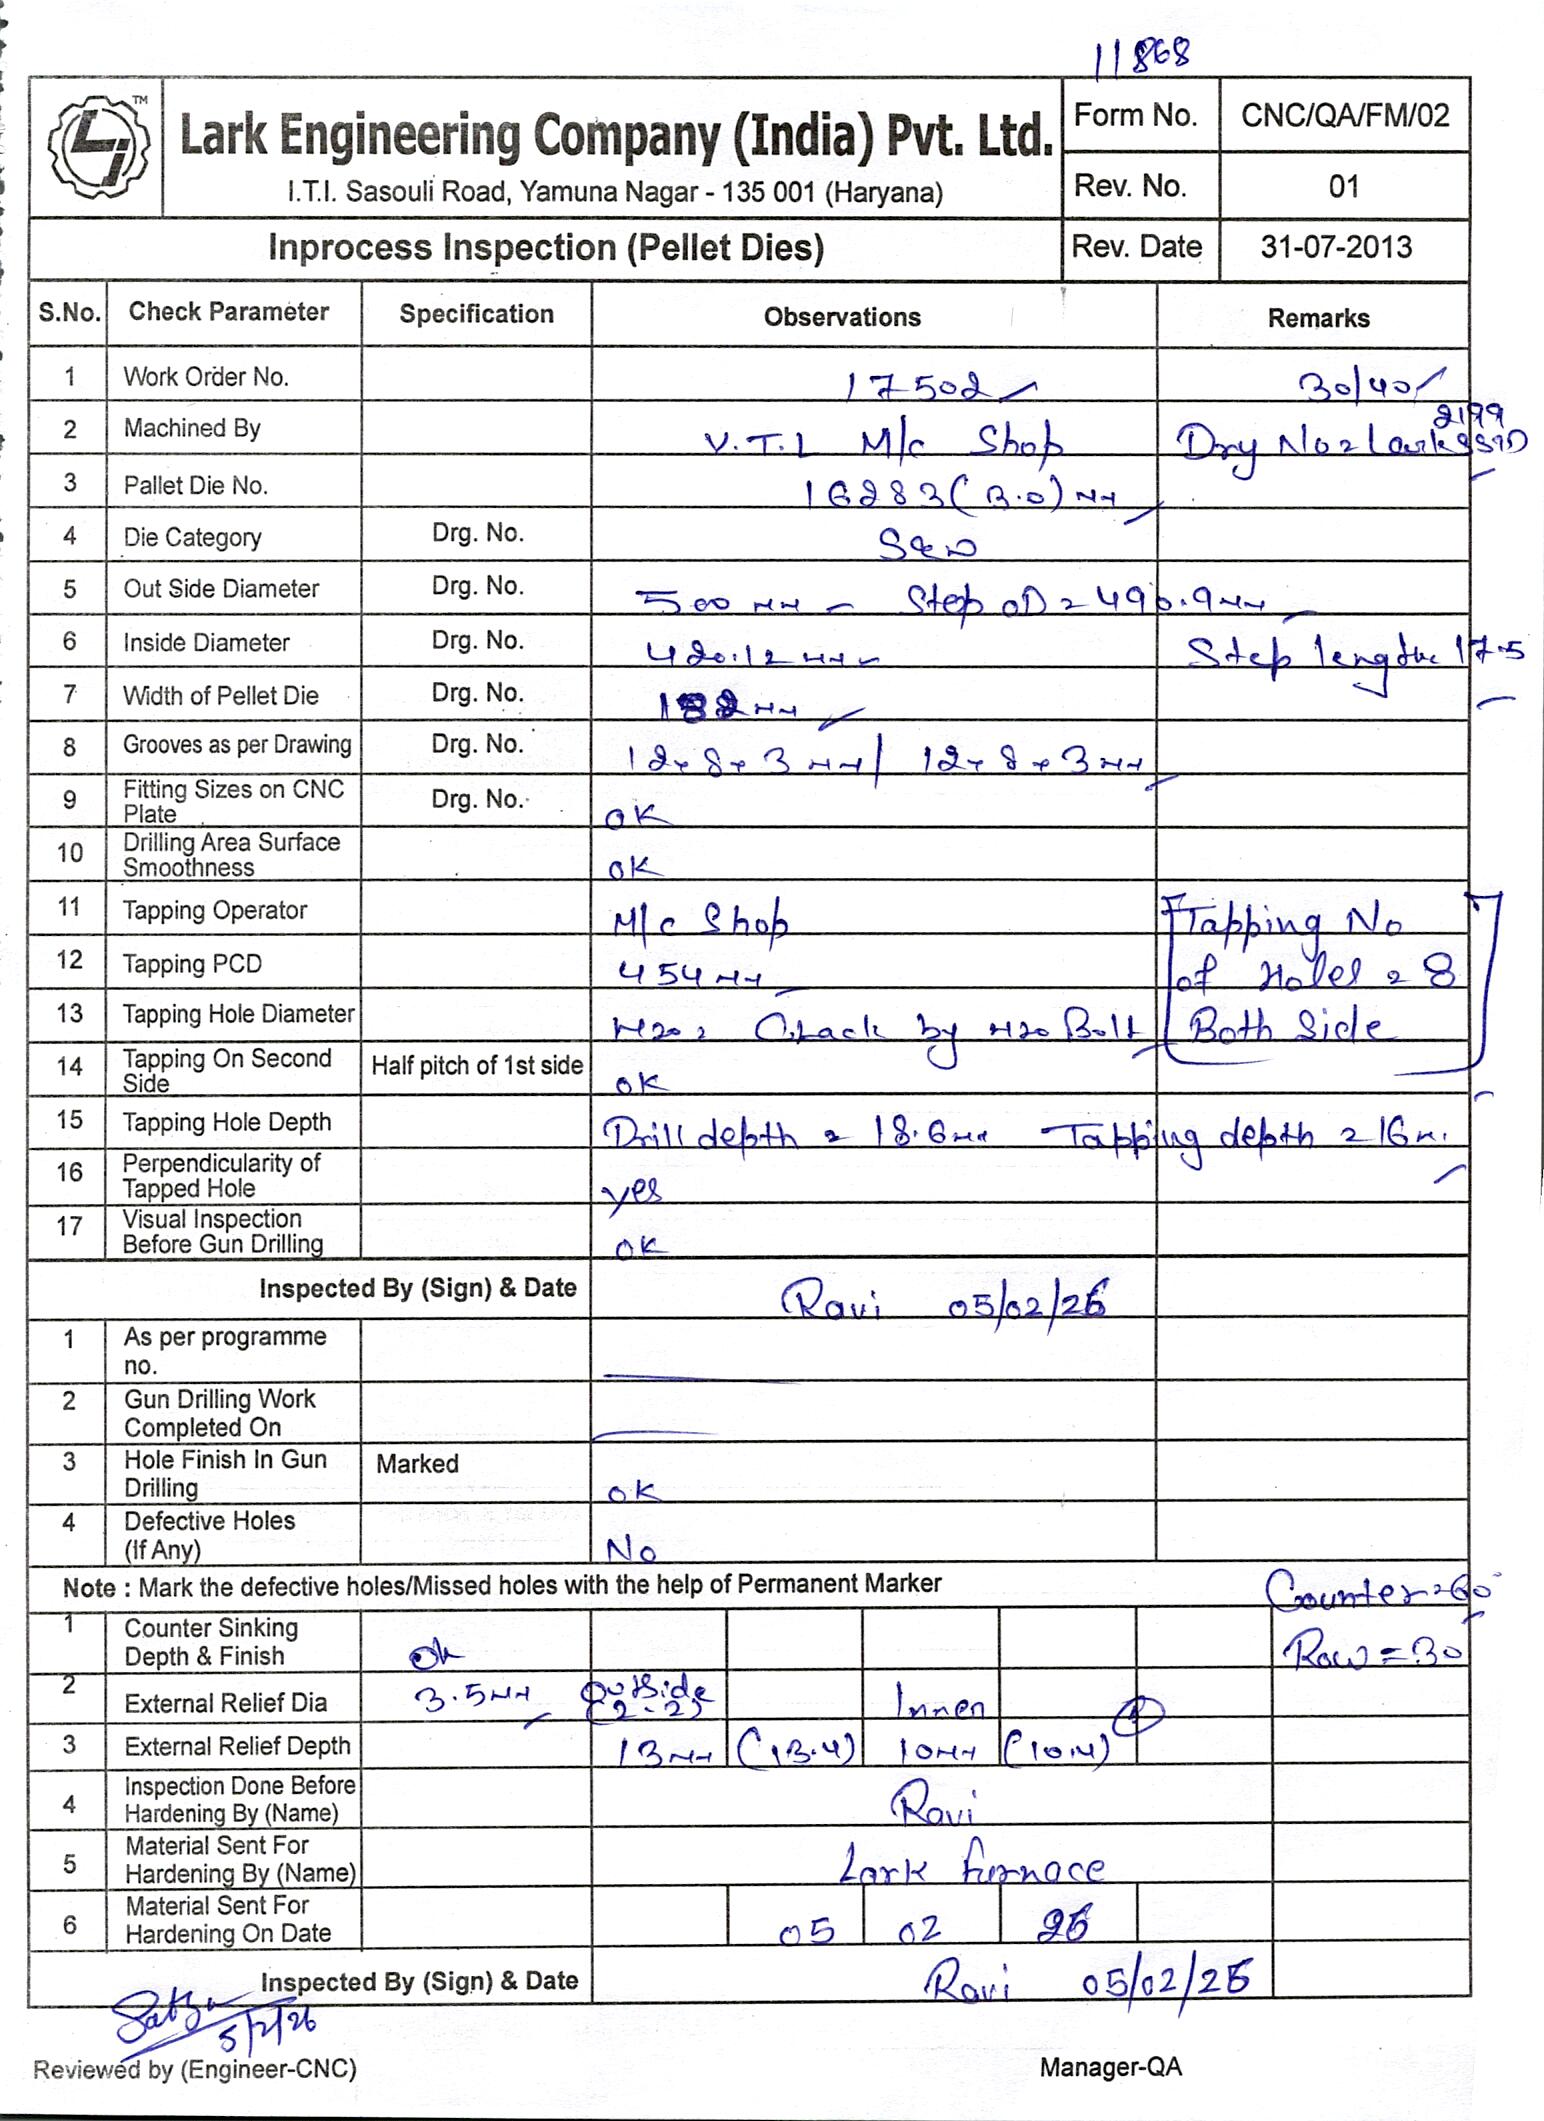 11868
TM
Lark Engineering Company (India) Pvt. Ltd.
I.T.I. Sasouli Road, Yamuna Nagar - 135 001 (Haryana)
Form No. CNC/QA/FM/02
Rev. No. 01
Inprocess Inspection (Pellet Dies) Rev. Date 31-07-2013
S.No. Check Parameter Specification Observations Remarks
1 Work Order No. 17502 30/40
2 Machined By V.T.L M/c Shop Drg No = Lark 2199
3 Pallet Die No. 16283 (3.0) mm
4 Die Category Drg. No. S&W
5 Out Side Diameter Drg. No. 500 mm Step OD = 490.9 mm
6 Inside Diameter Drg. No. 420.12 mm Step length 17.5
7 Width of Pellet Die Drg. No. 182 mm
8 Grooves as per Drawing Drg. No. 12 x 8 x 3 mm / 12 x 8 x 3 mm
9 Fitting Sizes on CNC Plate Drg. No. OK
10 Drilling Area Surface Smoothness OK
11 Tapping Operator M/c Shop Tapping No
12 Tapping PCD 454 mm of Holes = 8
13 Tapping Hole Diameter M20 = Check by M20 Bolt Both Side
14 Tapping On Second Side Half pitch of 1st side OK
15 Tapping Hole Depth Drill depth = 18.6 mm Tapping depth = 16 m.
16 Perpendicularity of Tapped Hole yes
17 Visual Inspection Before Gun Drilling OK
Inspected By (Sign) & Date Ravi 05/02/26
1 As per programme no.
2 Gun Drilling Work Completed On
3 Hole Finish In Gun Drilling Marked OK
4 Defective Holes (If Any) No
Note : Mark the defective holes/Missed holes with the help of Permanent Marker Counter = 60°
1 Counter Sinking Depth & Finish Ok Row = 30
2 External Relief Dia 3.5 mm Outside (2-2) Inner
3 External Relief Depth 13 mm (13.4) 10 mm (10.4)
4 Inspection Done Before Hardening By (Name) Ravi
5 Material Sent For Hardening By (Name) Lark Furnace
6 Material Sent For Hardening On Date 05 02 26
Inspected By (Sign) & Date Ravi 05/02/26
5/2/26
Reviewed by (Engineer-CNC) Manager-QA